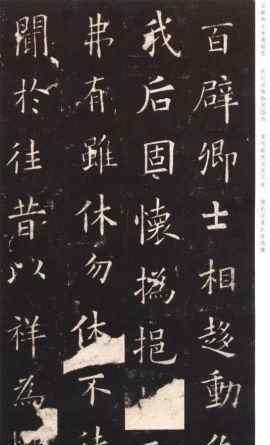 百辟卿士相趍動
我后固懷撝挹
弗有雖休勿休不
聞於往昔以祥為